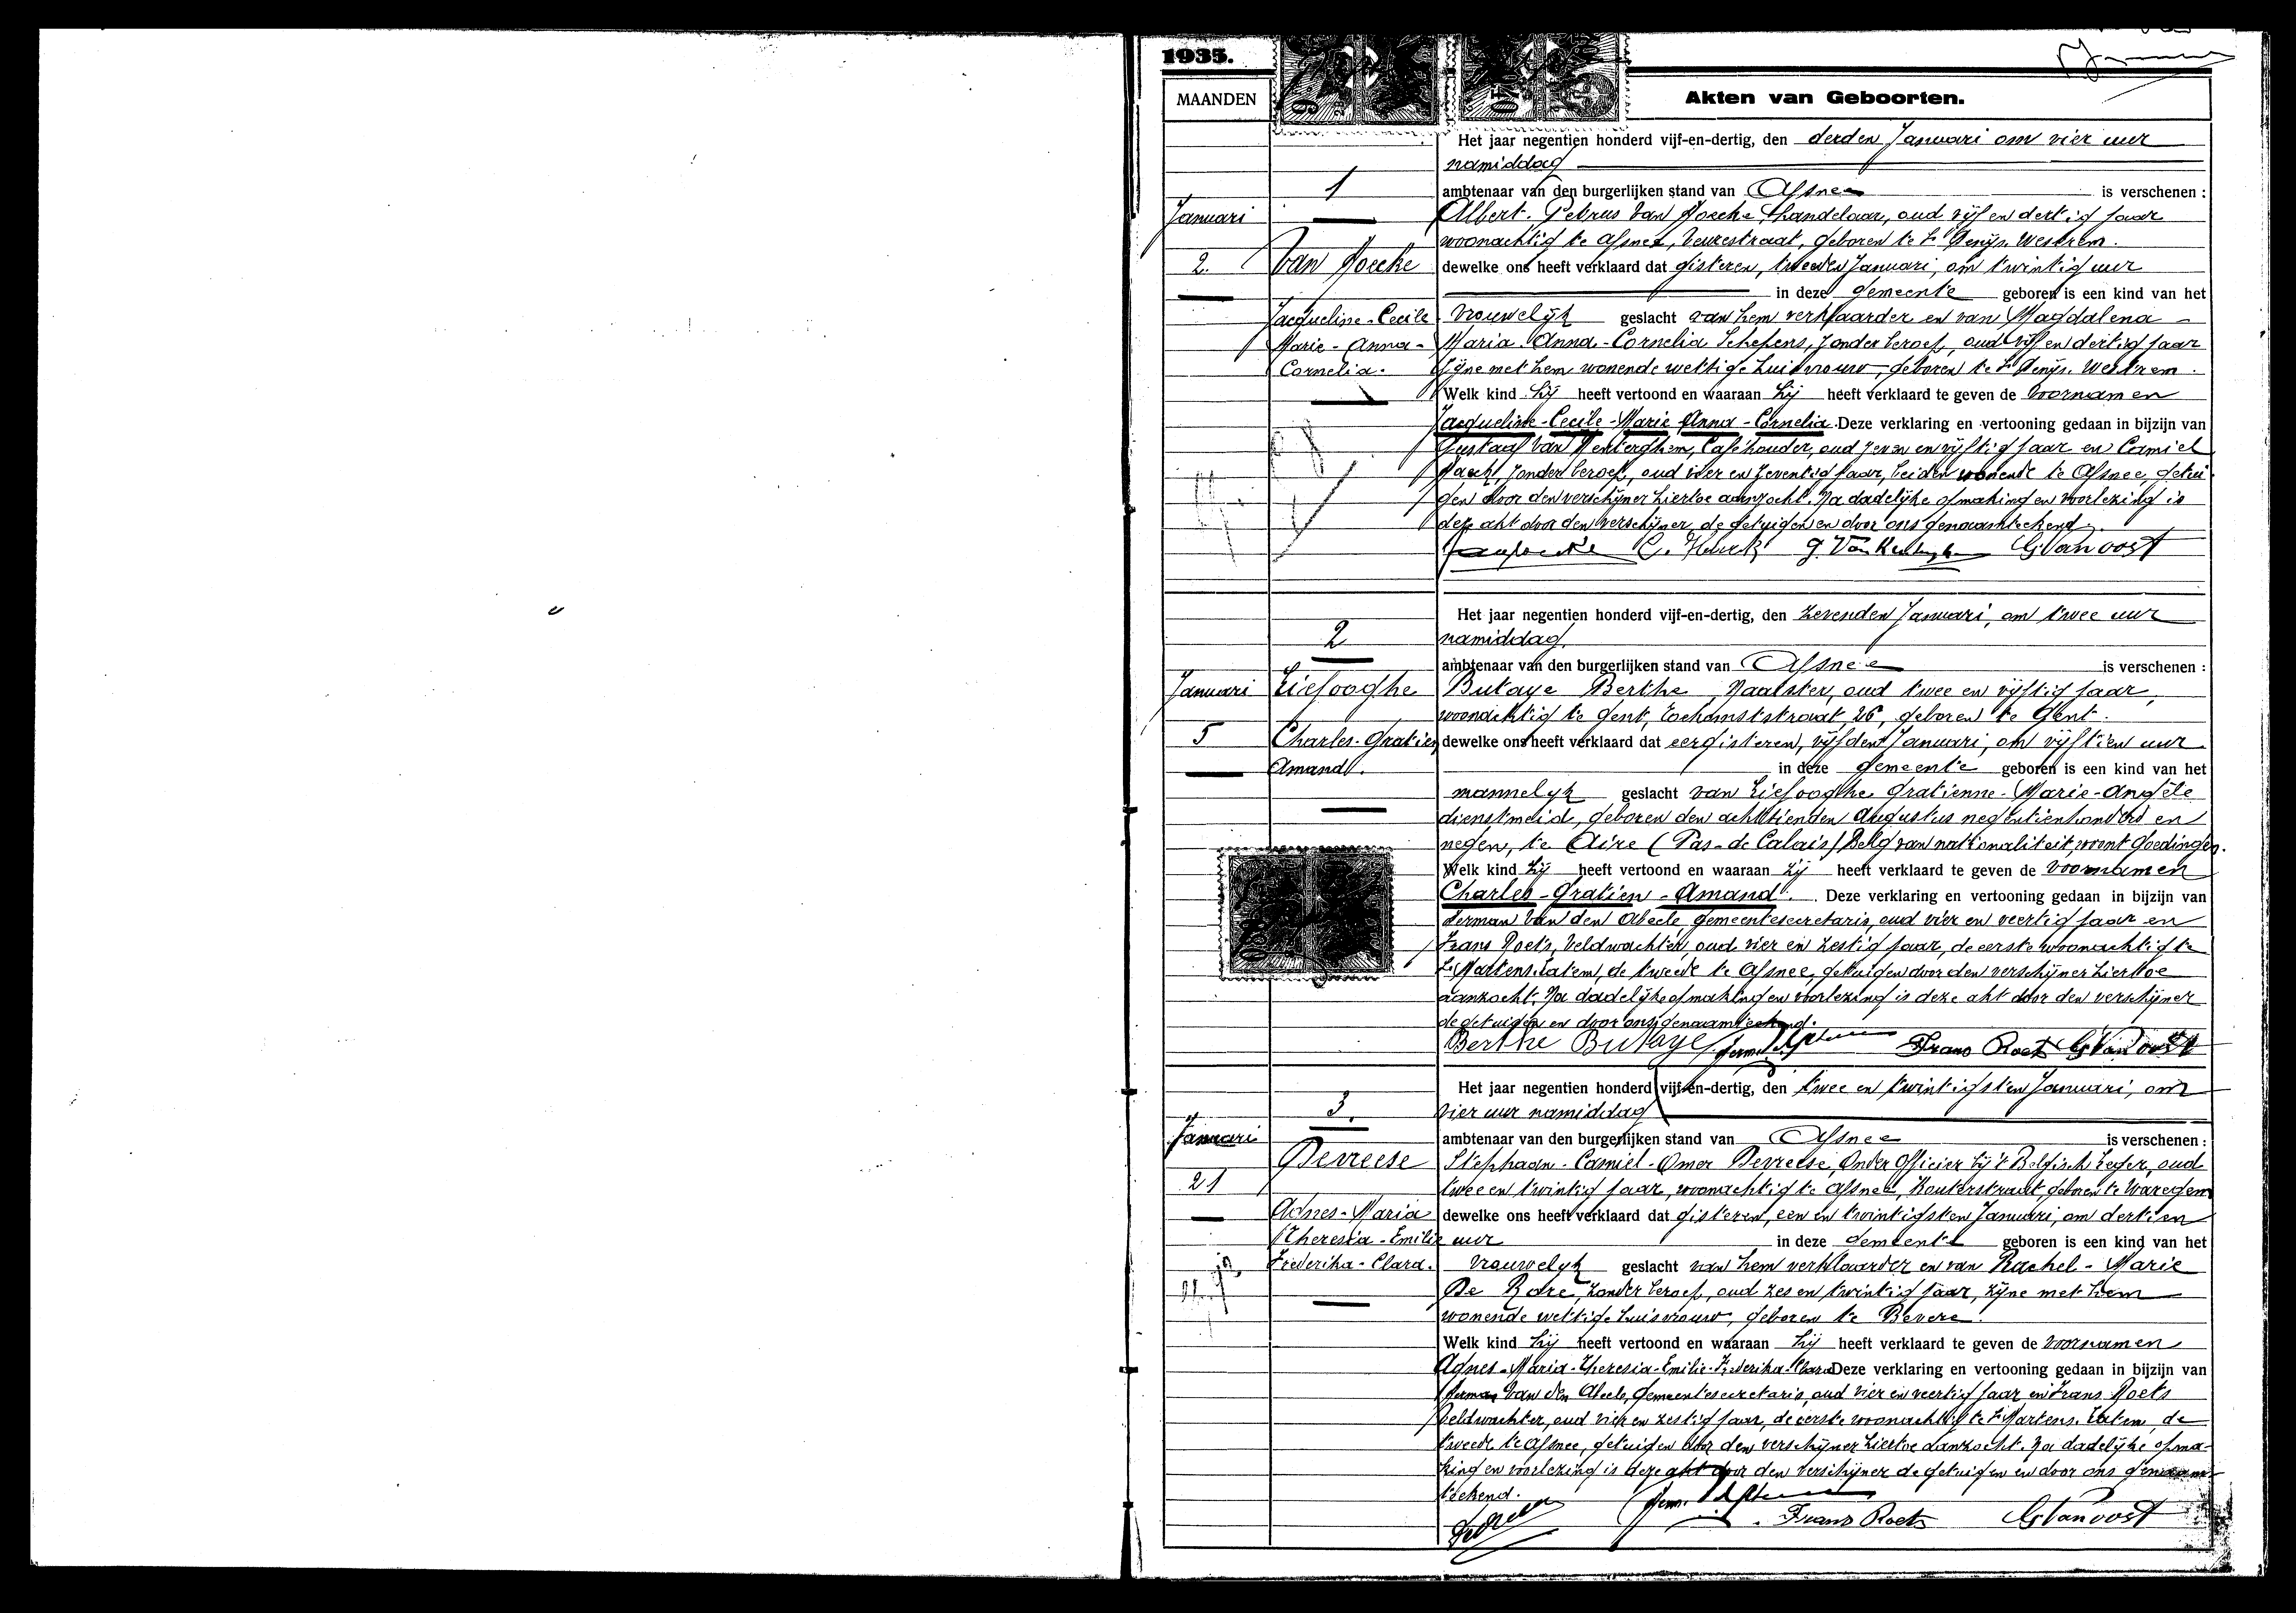 1935.
MAANDEN
Akten van Geboorten.
Het jaar negentien honderd vijf-en-dertig, den derden Januari om vier uur
namiddag
1
ambtenaar van den burgerlijken stand van Afsnee is verschenen :
Januari
Albert-Petrus Van Hoecke, handelaar, oud vijf en dertig jaar
woonachtig te Afsnee, Veurestraat, geboren te St Denijs-Westrem.
2.
Van Hoecke
dewelke ons heeft verklaard dat gisteren, tweeden Januari, om twintig uur
in deze gemeente geboren is een kind van het
Jacqueline-Cecile
vrouwelijk geslacht van hem verklaarder en van Magdalena
Marie-Anna-
Maria-Anna-Cornelia Schepens, zonder beroep, oud vijf en dertig jaar
Cornelia.
zijne met hem wonende wettige huisvrouw, geboren te St Denijs-Westrem.
Welk kind hij heeft vertoond en waaraan hij heeft verklaard te geven de voornamen
Jacqueline-Cecile-Marie Anna-Cornelia. Deze verklaring en vertooning gedaan in bijzijn van
Gustaaf Van , Caféhouder, oud zeven en vijftig jaar en Camiel
zonder beroep, oud vier en zeventig jaar, beiden wonende te Afsnee, getui-
gen door den verschijner hiertoe aanzocht. Na dadelijke opmaking en voorlezing is
deze akt door den verschijner, de getuigen en door ons genaamteekend.
G. Van Oost
Het jaar negentien honderd vijf-en-dertig, den zevenden Januari, om twee uur
2
namiddag.
ambtenaar van den burgerlijken stand van Afsnee is verschenen :
Januari
Liefooghe
Butaye Berthe, Naaister, oud twee en vijftig jaar,
woonachtig te Gent, 26, geboren te Gent.
5
Charles-Gratien
dewelke ons heeft verklaard dat eergisteren, vijfden Januari, om vijftien uur
Amand.
in deze gemeente geboren is een kind van het
mannelijk geslacht van Liefooghe Gratienne-Marie-Angèle
dienstmeid, geboren den achttienden Augustus negentienhonderd en
negen, te Aire (Pas-de Calais) Belg van nationaliteit, woont Goedingen.
Welk kind zij heeft vertoond en waaraan zij heeft verklaard te geven de voornamen
Charles-Gratien-Amand. Deze verklaring en vertooning gedaan in bijzijn van
Herman Van den Abeele, gemeentesecretaris, oud vier en veertig jaar en
Frans Roets, Veldwachter, oud vier en zestig jaar, de eerste woonachtig te
St Martens-Latem, de tweede te Afsnee, getuigen door den verschijner hiertoe
aanzocht. Na dadelijke opmaking en voorlezing is deze akt door den verschijner
de getuigen en door ons genaamteekend.
Berthe Butaye Frans Roets G. Van Oost
Het jaar negentien honderd vijf-en-dertig, den twee en twintigsten Januari, om
3.
vier uur namiddag
Januari
ambtenaar van den burgerlijken stand van Afsnee is verschenen :
Devreese
Stephaan-Camiel-Omer Devreese, Onder Officier bij 't Belgisch Leger, oud
21
twee en twintig jaar, woonachtig te Afsnee, Kouterstraat, geboren te Waregem
Agnes-Maria
dewelke ons heeft verklaard dat gisteren, een en twintigsten Januari, om dertien
Theresia-Emilie
uur in deze gemeente geboren is een kind van het
Frederika-Clara.
vrouwelijk geslacht van hem verklaarder en van Rachel-Marie
De Rore, zonder beroep, oud zes en twintig jaar, zijne met hem
wonende wettige huisvrouw, geboren te Bevere.
Welk kind hij heeft vertoond en waaraan hij heeft verklaard te geven de voornamen
Agnes-Maria-Theresia-Emilie-Frederika-Clara Deze verklaring en vertooning gedaan in bijzijn van
Herman Van den Abeele, Gemeentesecretaris, oud vier en veertig jaar en Frans Roets
Veldwachter, oud vier en zestig jaar, de eerste woonachtig te St Martens-Latem, de
tweede te Afsnee, getuigen door den verschijner hiertoe aanzocht. Na dadelijke opma-
king en voorlezing is deze akt door den verschijner de getuigen en door ons genaam-
teekend.
Frans Roets G. Van Oost